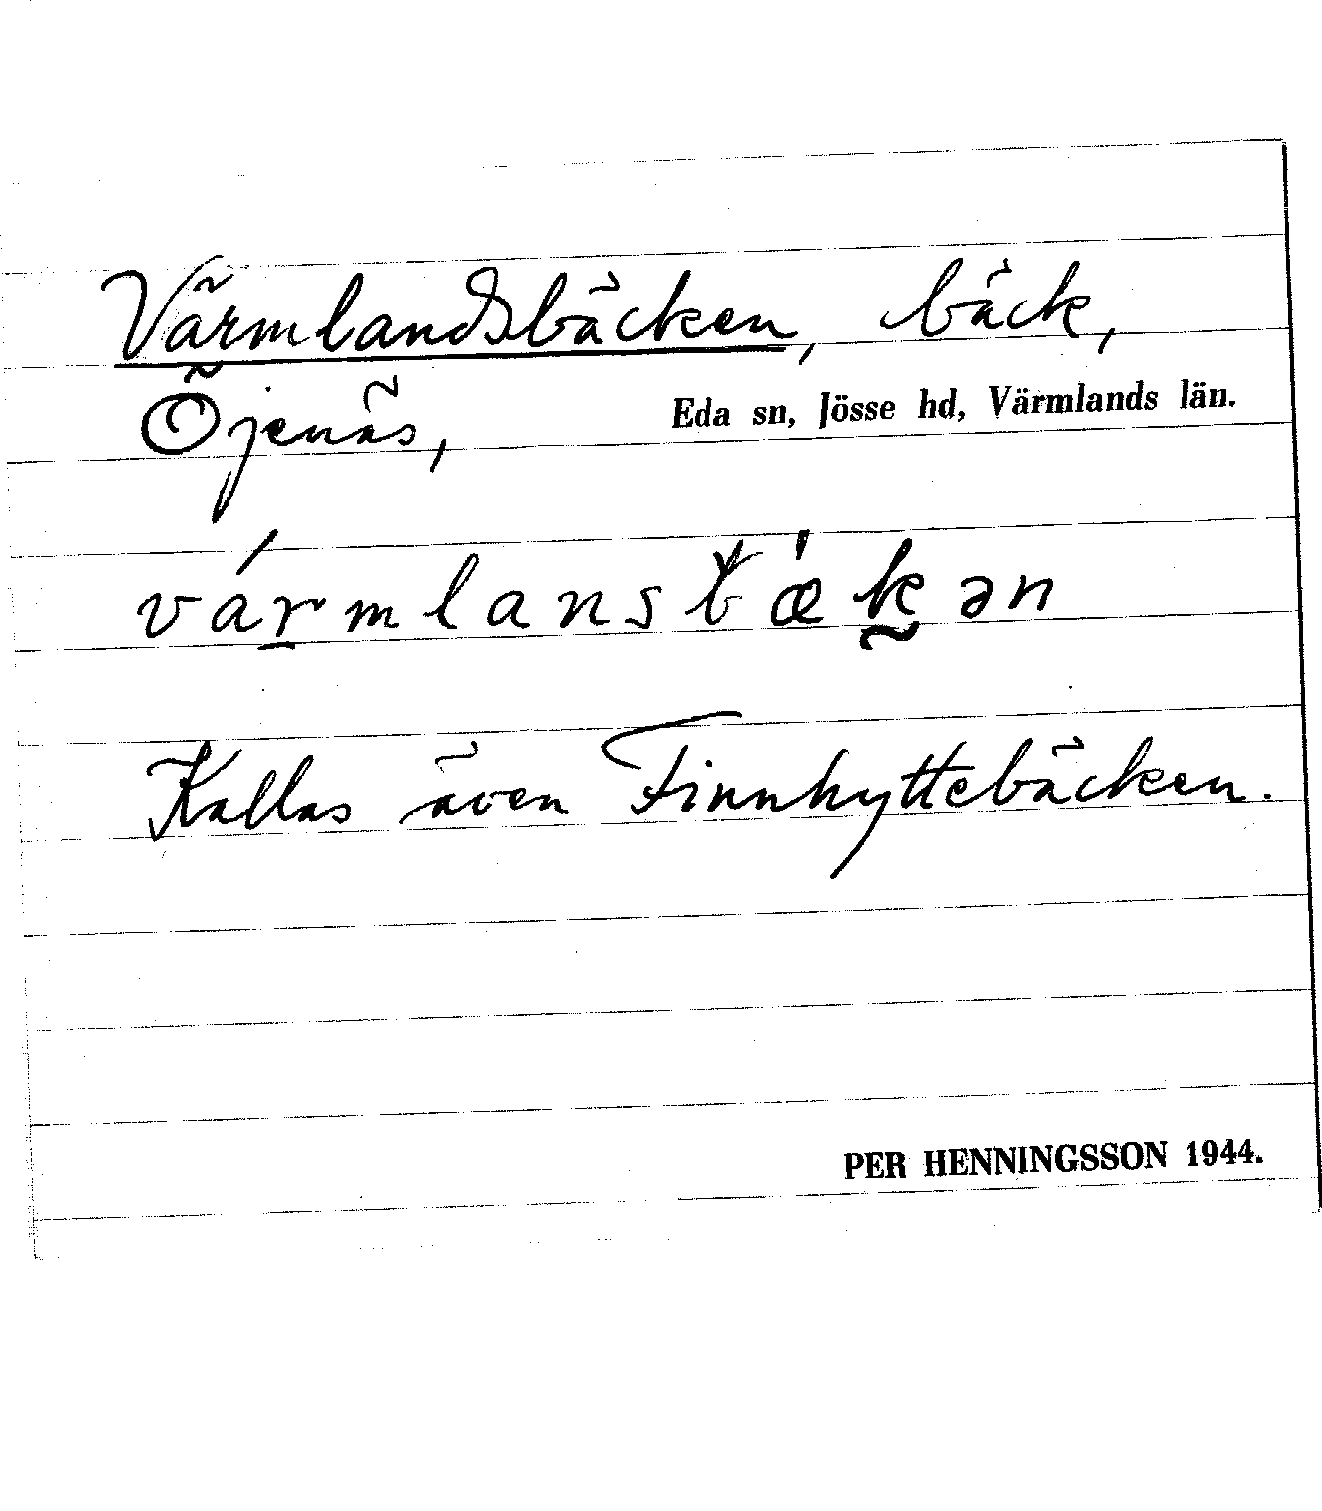 Värmlandsbäcken, bäck,
Öjenäs, Eda sn, Jösse hd, Värmlands län.
vármlansbǽkən
Kallas även Finnhyttebäcken.
PER HENNINGSSON 1944.